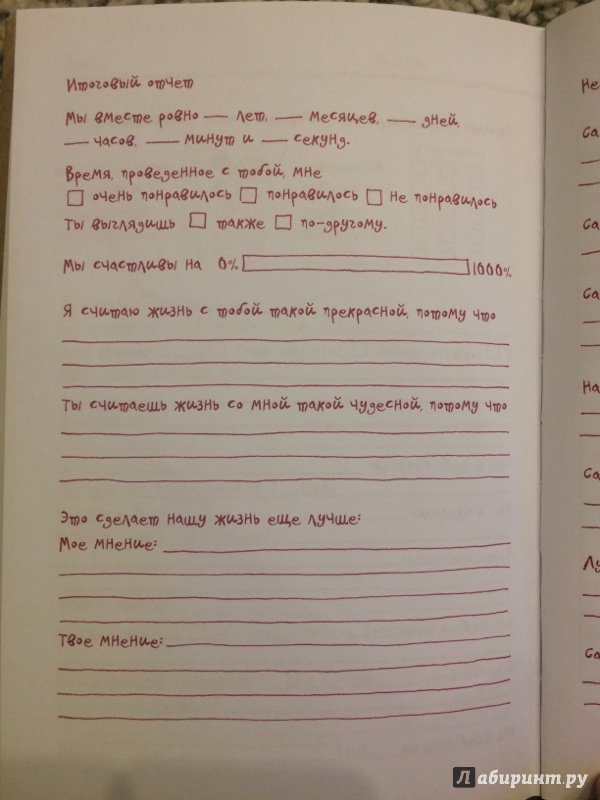 Итоговый отчет
Мы вместе ровно ___ лет, ___ месяцев, ___ дней,
___ часов, ___ минут и ___ секунд.
Время, проведенное с тобой, мне
☐ очень понравилось ☐ понравилось ☐ не понравилось
Ты выглядишь ☐ также ☐ по-другому.
Мы счастливы на 0% 1000%
Я считаю жизнь с тобой такой прекрасной, потому что
Ты считаешь жизнь со мной такой чудесной, потому что
Это сделает нашу жизнь еще лучше:
Мое мнение:
Твое мнение:
Лабиринт.ру